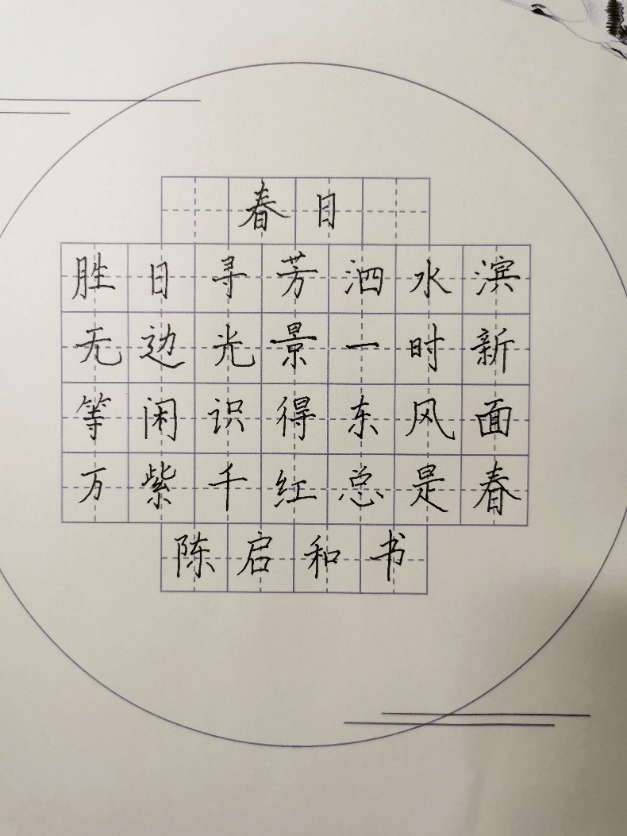 春日
胜日寻芳泗水滨
无边光景一时新
等闲识得东风面
万紫千红总是春
陈启和书